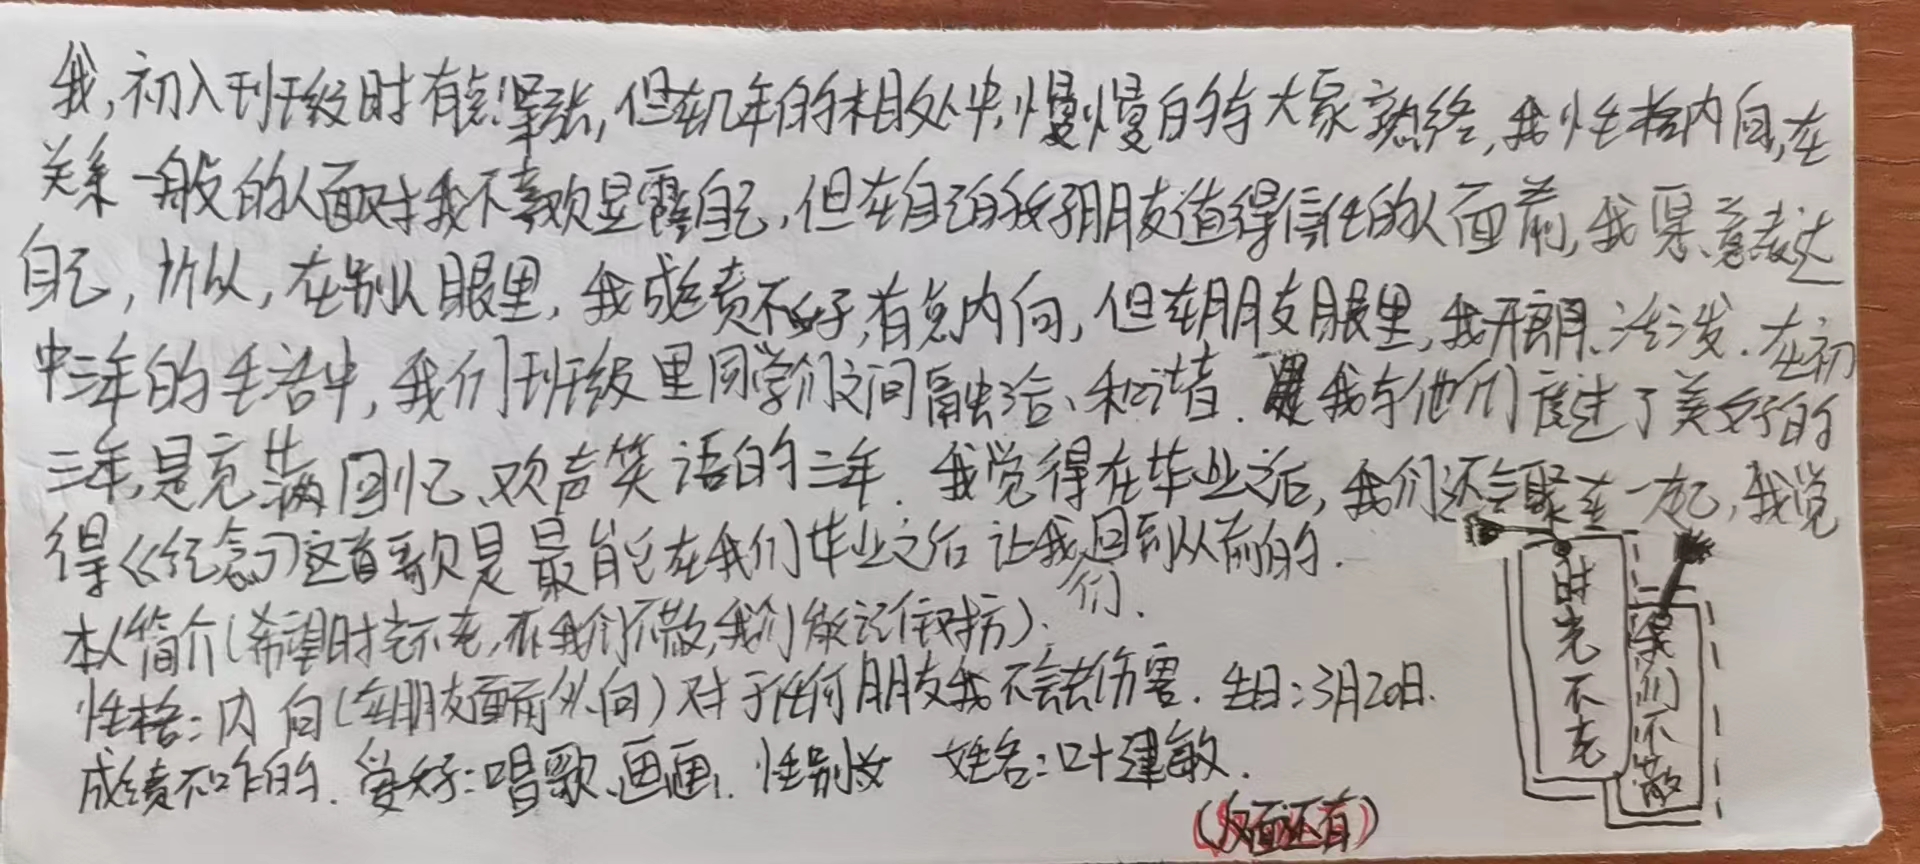 我,初入班级时有点紧张,但在几年的相处中,慢慢的与大家熟络,我性格内向,在
关系一般的人面对我不喜欢显露自己,但在自己的好朋友值得信任的人面前,我愿意表达
自己,所以,在别人眼里,我成绩不好,有点内向,但在朋友眼里,我开朗、活泼.在初
中三年的生活中,我们班级里同学们之间融洽、和谐.是我与他们度过了美好的
三年,是充满回忆、欢声笑语的三年.我觉得在毕业之后,我们还会聚在一起,我觉
得《纪念》这首歌是最能在我们毕业之后让我们回到从前的.
本人简介(希望时光不老,我们不散,我们能记住对方).
性格:内向(在朋友面前外向)对于任何朋友我不会去伤害.生日:3月20日.
成绩不咋的.爱好:唱歌、画画.性别女 姓名:叶建敏.
(反面还有)
时光不老
我们不散